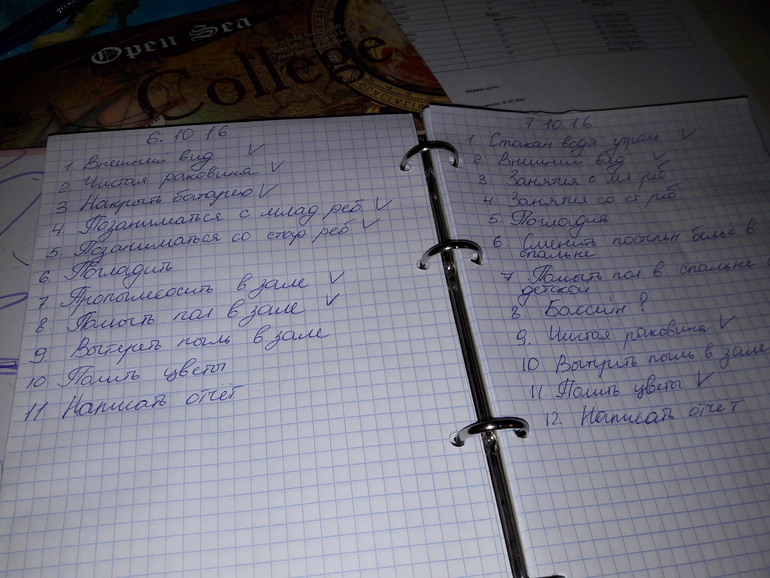 Open Sea
College
6.10.16
1 Внешний вид ✓
2 Чистая раковина ✓
3 Накрыть батарею ✓
4 Позаниматься с млад. реб ✓
5 Позаниматься со стар. реб ✓
6 Погладить
7 Пропылесосить в зале ✓
8. Помыть пол в зале ✓
9 Вытереть пыль в зале
10 Полить цветы
11 Написать отчёт
7.10.16
1 Стакан воды утром ✓
2 Внешний вид ✓
3 Занятия с мл реб
4 Занятия со ст реб
5 Погладить
6 Сменить постельн белье в
спальне
7 Помыть пол в спальне и
детской
8 Бассейн ?
9. Чистая раковина ✓
10 Вытереть пыль в зале
11 Полить цветы ✓
12 Написать отчёт